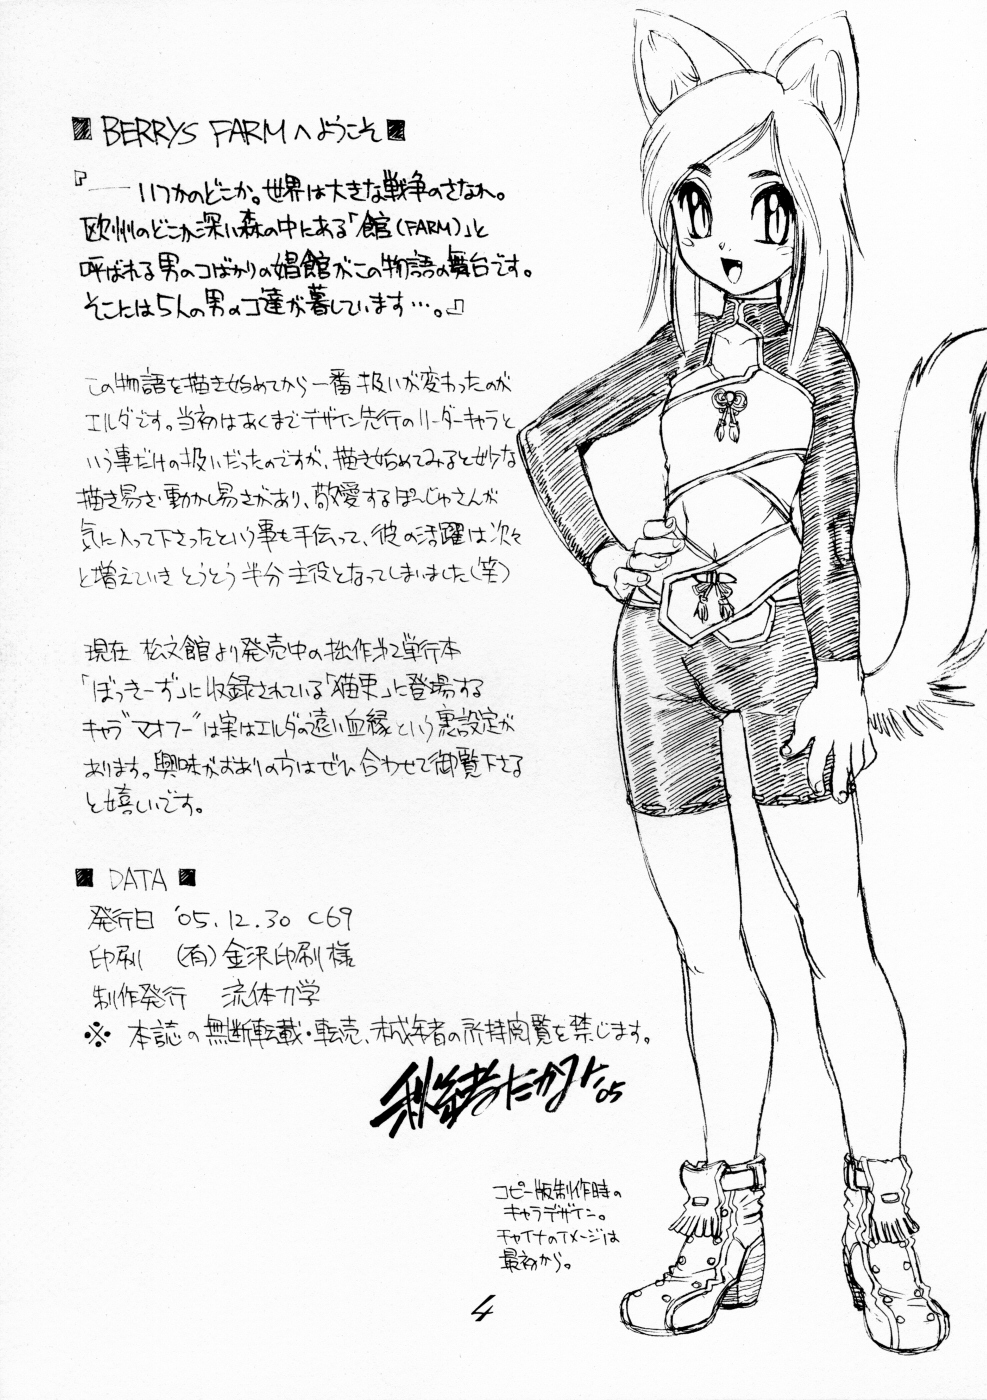 ■ BERRYS FARMへようこそ ■
『――いつかのどこか。世界は大きな戦争のさなか。
欧州のどこか深い森の中にある「館(FARM)」と
呼ばれる男のコばかりの娼館がこの物語の舞台です。
そこには5人の男のコ達が暮しています…。』
この物語を描き始めてから一番扱いが変わったのが
エルダです。当初はあくまでデザイン先行のリーダーキャラと
いう事だけの扱いだったのですが、描き始めてみると妙な
描き易さ・動かし易さがあり、敬愛するぽーじゅさんが
気に入って下さったという事も手伝って、彼の活躍は次々
と増えていきとうとう半分主役となってしまいました(笑)
現在 松文館より発売中の拙作才2単行本
「ぼっきーず」に収録されている「猫東」に登場する
キャラ"マオフー"は実はエルダの遠い血縁という裏設定が
あります。興味がおありの方はぜひ合わせて御覧下さる
と嬉しいです。
■ DATA ■
発行日 '05.12.30 C69
印刷 (有)金沢印刷様
制作発行 流体力学
※ 本誌の無断転載・転売、未成年者の所持閲覧を禁じます。
'05
コピー版制作時の
キャラデザイン。
チャイナのイメージは
最初から。
4